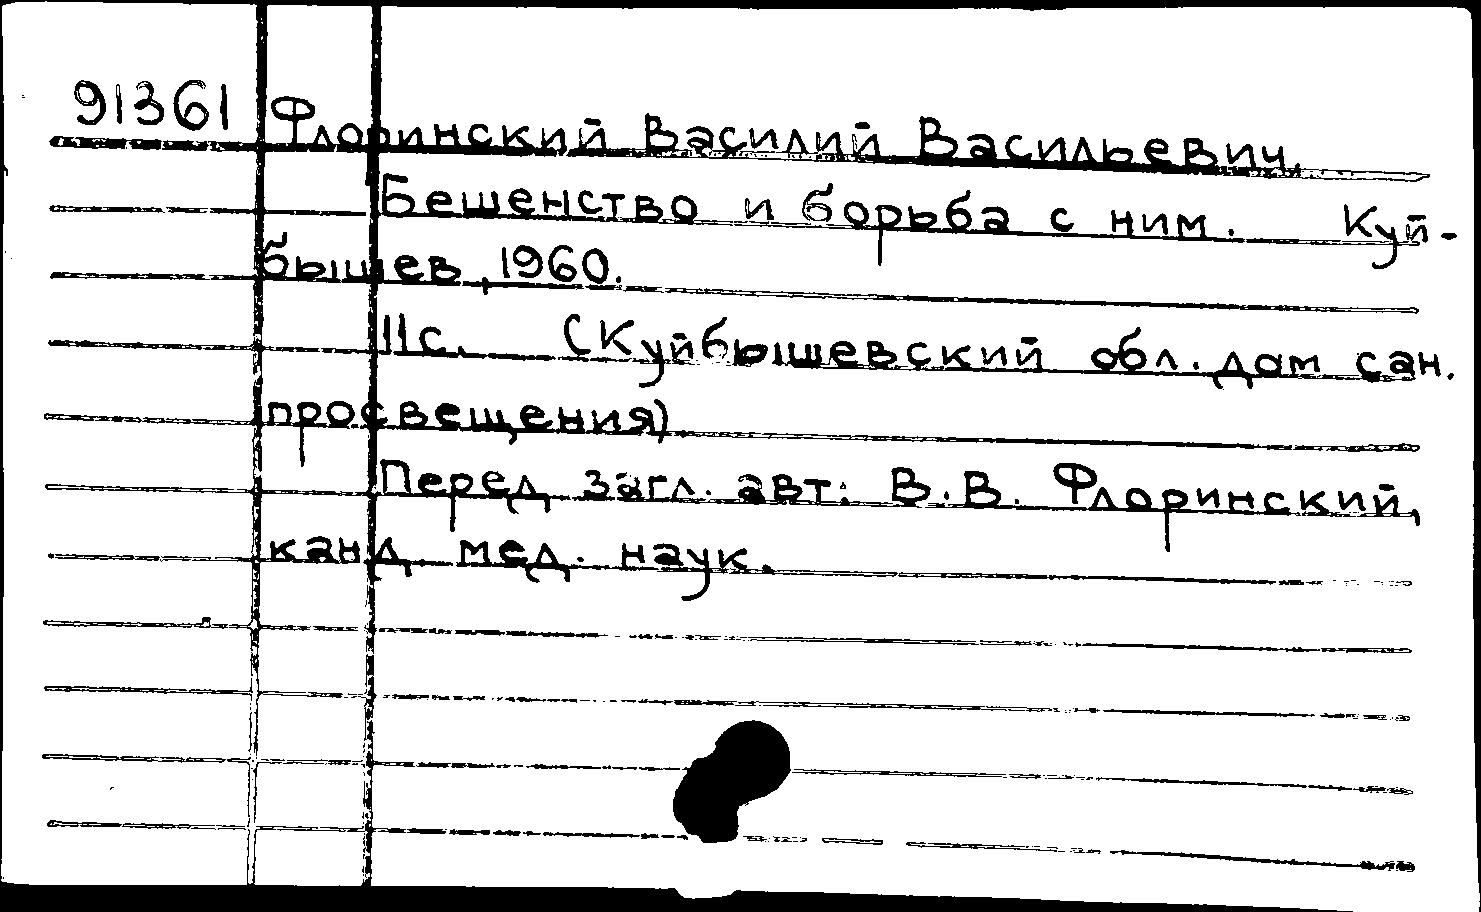 91361 Флоринский Василий Васильевич.
Бешенство и борьба с ним. Куй-
бышев, 1960.
11с. (Куйбышевский обл. дом сан.
просвещения)
Перед загл. авт: В.В. Флоринский,
канд. мед. наук.